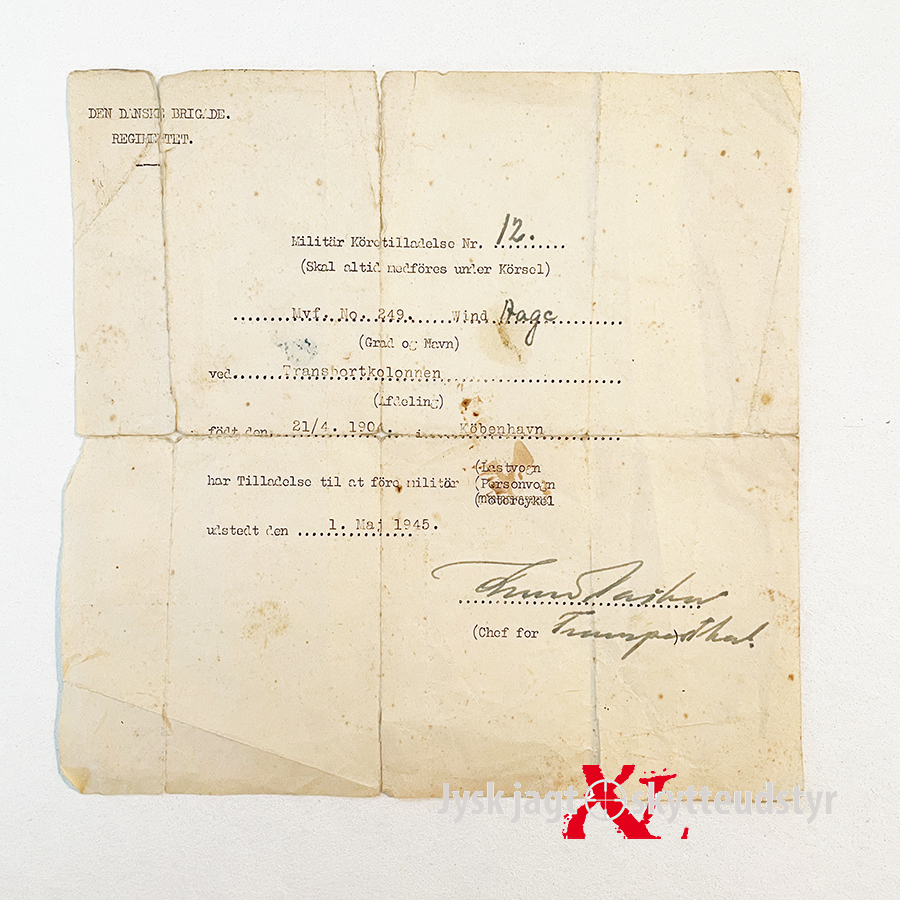 DEN DANSKE BRIGADE.
REGIMENTET.
Militär Köretilladelse Nr. 12.
(Skal altid medföres under Körsel)
Mvf. No. 249. Wind Aage
(Grad og Navn)
ved Transportkolonnen
(Afdeling)
född den 21/4. 1904. i København
har Tilladelse til at före militär (Lastvogn
(Personvogn
(motorcykel
udstedt den 1. Maj 1945.
(Chef for
Jysk jagt & skytteudstyr
XL